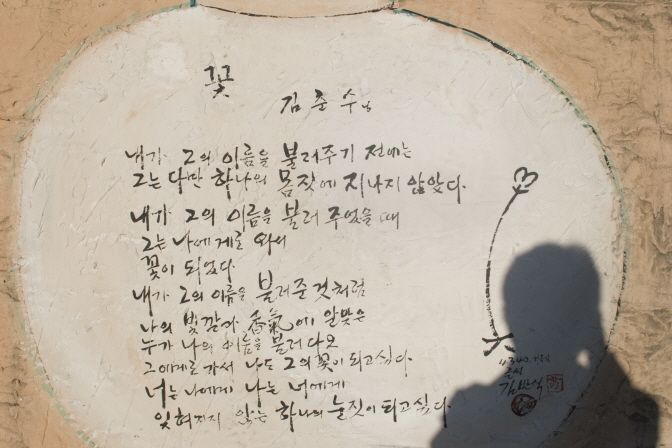 꽃
김 준 수님
내가 그의 이름을 불러주기 전에는
그는 다만 하나의 몸짓에 지나지 않았다.
내가 그의 이름을 불러 주었을 때
그는 나에게로 와서
꽃이 되었다
내가 그의 이름을 불러준것처럼
나의 빛깔과 香氣에 알맞은
누가 나의 이름을 불러다오
그에게로 가서 나도 그의 꽃이 되고싶다.
너는 나에게 나는 너에게
잊혀지지 않는 하나의 눈짓이 되고 싶다.